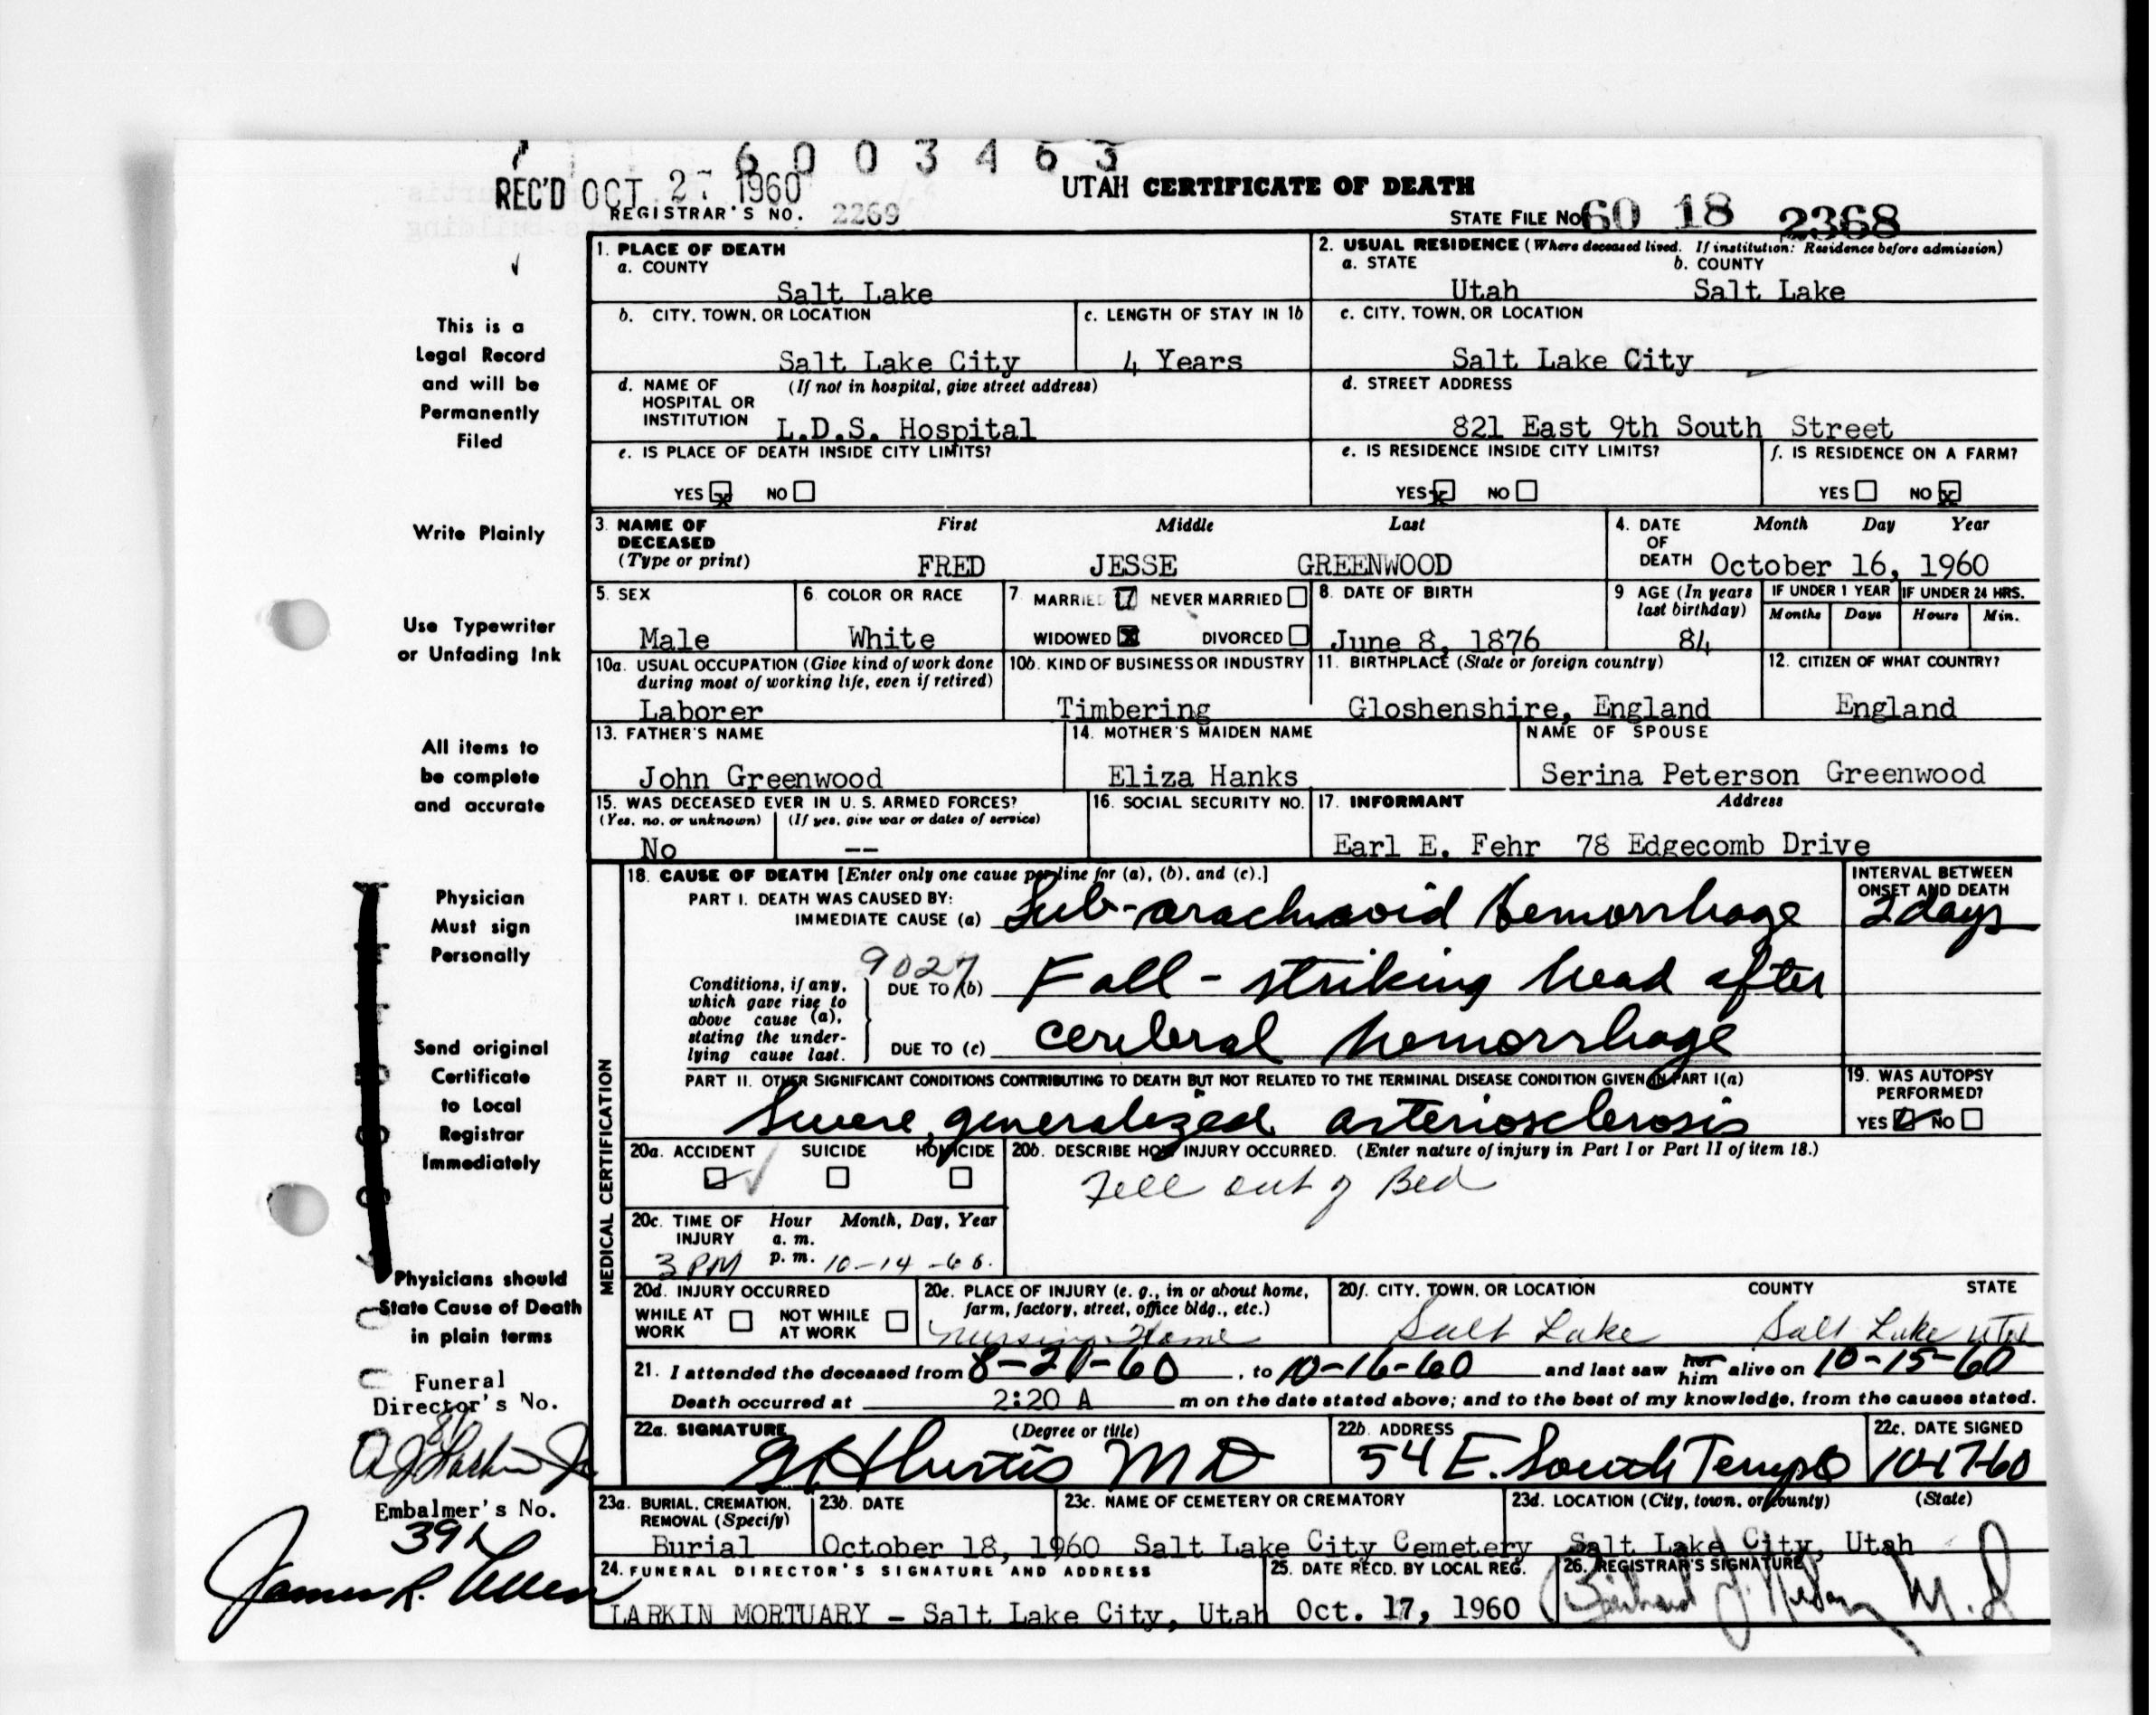 6003463
REC'D OCT 2 1960
UTAH CERTIFICATE OF DEATH
REGISTRAR'S NO. 2269
STATE FILE No 60 18 2368
1. PLACE OF DEATH
a. COUNTY
Salt Lake
2. USUAL RESIDENCE (Where deceased lived. If institution: Residence before admission)
a. STATE b. COUNTY
Utah Salt Lake
b. CITY, TOWN, OR LOCATION
Salt Lake City
c. LENGTH OF STAY IN 1b
4 Years
c. CITY, TOWN, OR LOCATION
Salt Lake City
d. NAME OF HOSPITAL OR INSTITUTION (If not in hospital, give street address)
L.D.S. Hospital
d. STREET ADDRESS
821 East 9th South Street
e. IS PLACE OF DEATH INSIDE CITY LIMITS?
YES x NO
e. IS RESIDENCE INSIDE CITY LIMITS?
YES x NO
f. IS RESIDENCE ON A FARM?
YES NO x
3. NAME OF DECEASED (Type or print)
First Middle Last
FRED JESSE GREENWOOD
4. DATE OF DEATH
Month Day Year
October 16, 1960
5. SEX
Male
6. COLOR OR RACE
White
7 MARRIED NEVER MARRIED
WIDOWED X DIVORCED
8. DATE OF BIRTH
June 8, 1876
9 AGE (In years last birthday)
84
IF UNDER 1 YEAR
Months Days
IF UNDER 24 HRS.
Hours Min.
10a. USUAL OCCUPATION (Give kind of work done during most of working life, even if retired)
Laborer
10b. KIND OF BUSINESS OR INDUSTRY
Timbering
11. BIRTHPLACE (State or foreign country)
Gloshenshire, England
12. CITIZEN OF WHAT COUNTRY?
England
13. FATHER'S NAME
John Greenwood
14. MOTHER'S MAIDEN NAME
Eliza Hanks
NAME OF SPOUSE
Serina Peterson Greenwood
15. WAS DECEASED EVER IN U. S. ARMED FORCES?
(Yes, no, or unknown) (If yes, give war or dates of service)
No --
16. SOCIAL SECURITY NO.
17. INFORMANT Address
Earl E. Fehr 78 Edgecomb Drive
18. CAUSE OF DEATH [Enter only one cause per line for (a), (b), and (c).]
PART I. DEATH WAS CAUSED BY:
IMMEDIATE CAUSE (a) Sub-arachnoid Hemorrhage
INTERVAL BETWEEN ONSET AND DEATH
2 days
9027
Conditions, if any, which gave rise to above cause (a), stating the underlying cause last.
DUE TO (b) Fall - striking head after
DUE TO (c) cerebral hemorrhage
PART II. OTHER SIGNIFICANT CONDITIONS CONTRIBUTING TO DEATH BUT NOT RELATED TO THE TERMINAL DISEASE CONDITION GIVEN IN PART I(a)
Severe generalized arteriosclerosis
19. WAS AUTOPSY PERFORMED?
YES NO
20a. ACCIDENT SUICIDE HOMICIDE
20b. DESCRIBE HOW INJURY OCCURRED. (Enter nature of injury in Part I or Part II of item 18.)
Fell out of Bed
20c. TIME OF INJURY Hour Month, Day, Year
a. m.
p. m.
3 PM 10-14-60.
20d. INJURY OCCURRED
WHILE AT WORK NOT WHILE AT WORK
20e. PLACE OF INJURY (e. g., in or about home, farm, factory, street, office bldg., etc.)
Nursing Home
20f. CITY, TOWN, OR LOCATION COUNTY STATE
Salt Lake Salt Lake Utah
21. I attended the deceased from 8-20-60, to 10-16-60 and last saw her him alive on 10-15-60
Death occurred at 2:20 A m on the date stated above; and to the best of my knowledge, from the causes stated.
22a. SIGNATURE (Degree or title)
Curtis MD
22b. ADDRESS
54 E. South Temple
22c. DATE SIGNED
10-17-60
23a. BURIAL, CREMATION, REMOVAL (Specify)
Burial
23b. DATE
October 18, 1960
23c. NAME OF CEMETERY OR CREMATORY
Salt Lake City Cemetery
23d. LOCATION (City, town, or county) (State)
Salt Lake City, Utah
24. FUNERAL DIRECTOR'S SIGNATURE AND ADDRESS
LARKIN MORTUARY - Salt Lake City, Utah
25. DATE RECD. BY LOCAL REG.
Oct. 17, 1960
26. REGISTRAR'S SIGNATURE
M.D
MEDICAL CERTIFICATION
This is a
Legal Record
and will be
Permanently
Filed
Write Plainly
Use Typewriter
or Unfading Ink
All items to
be complete
and accurate
Physician
Must sign
Personally
Send original
Certificate
to Local
Registrar
Immediately
Physicians should
State Cause of Death
in plain terms
Funeral
Director's No.
Embalmer's No.
James R. Allen